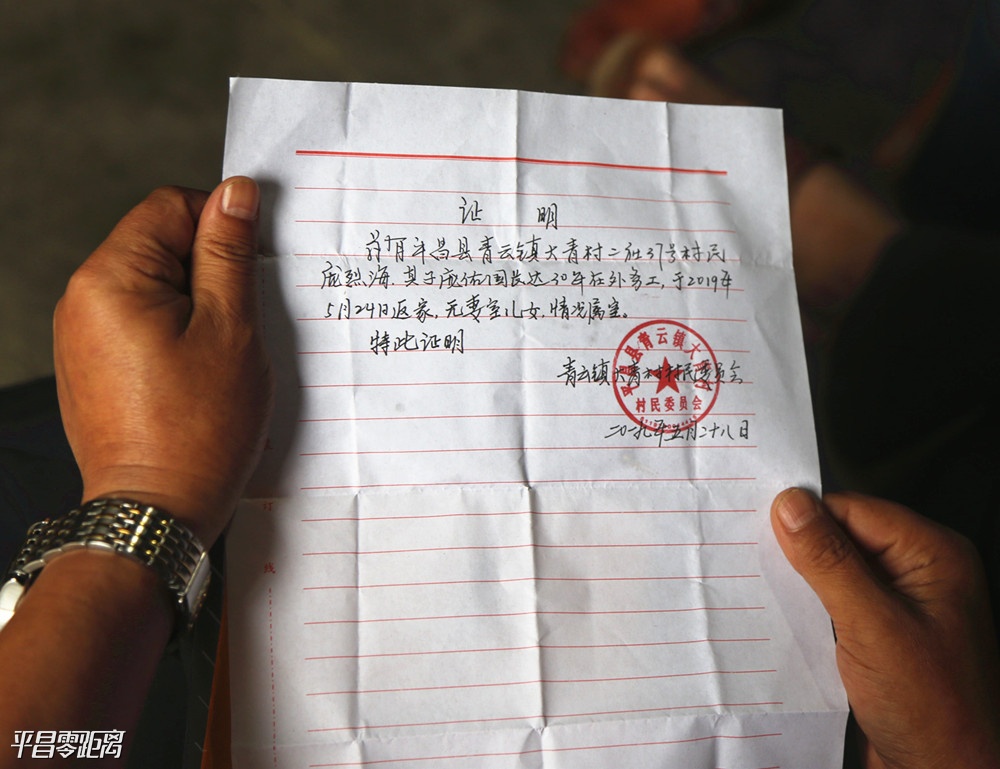 证 明
兹有平昌县青云镇大青村二社37号村民
庞烈海,其子庞佑国长达30年在外务工,于2019年
5月24日返家,无妻室儿女,情况属实。
特此证明
青云镇大青村村民委员会
二〇一九年五月二十八日
平昌县青云镇大青村
村民委员会
订
线
平昌零距离